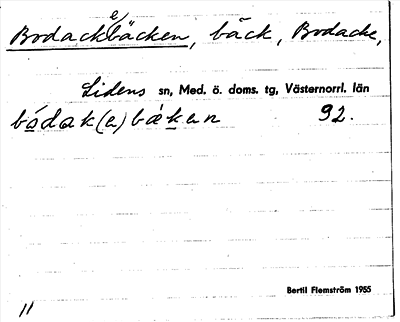 Bodackebäcken, bäck, Bodacke,
Lidens sn, Med. ö. doms. tg, Västernorrl. län
bódak(e)bækan 92.
Bertil Flemström 1955
11